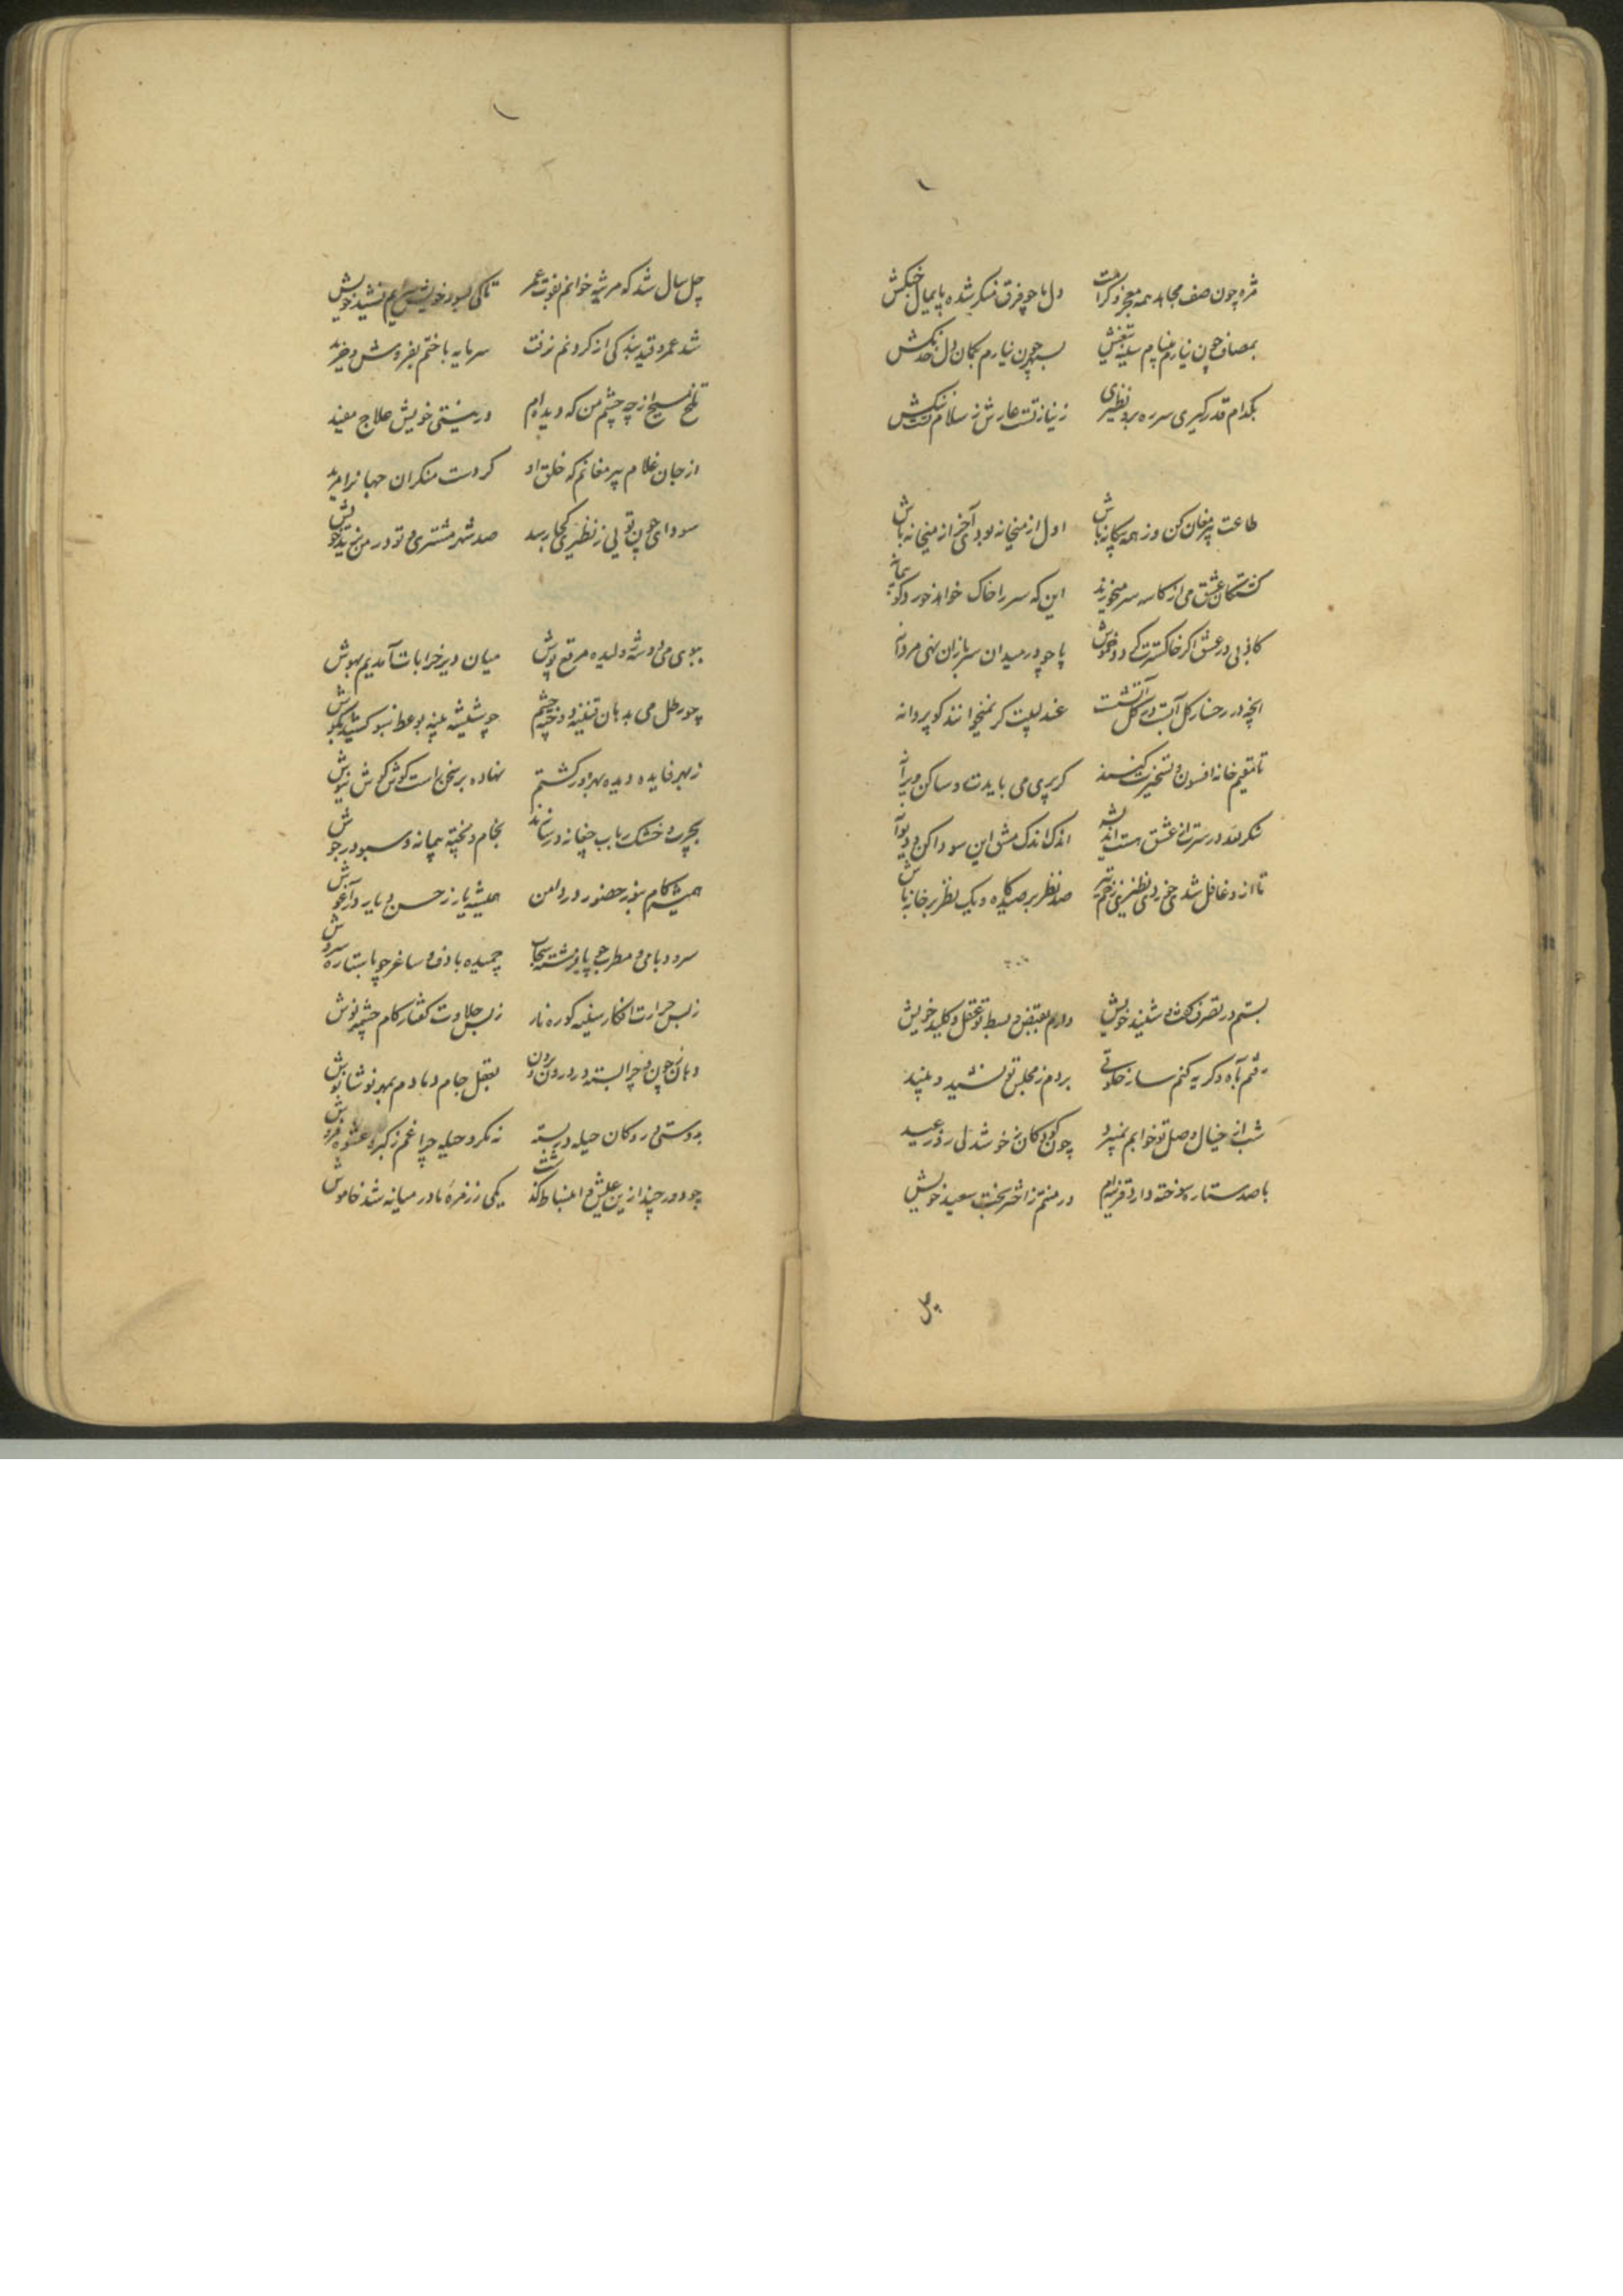 مژه چون صف مجاهد همه معجز و کرامت دل ما چو فرق منکر شده پایمال جنگش
بمصاف چون نیارم بنیام سینه تیغش بسپهر چون نیارم بکمان دل خدنگش
بکدام قدر گیری سر ره برو نظیری ز نیاز تست عارش ز سلام تست ننگش
طاعت پیر مغان کن وز همه بیگانه باش اول از میخانه بودی آخر از میخانه باش
کشتگان عشق می از کاسه سر میخورند این که سر را خاک خواهد خورد گو پیمانه
کاذبی در عشق اگر خاکسترت کی دود خوش پا چو در میدان سربازان نهی مردانه
انچه در رخسار گل آبست در گل آتشست عندلیبت گر نمیخوانند گو پروانه
تا مقیم خانه افسون و تسخیرت کنند گر پری می بایدت و ساکن ویرانه
شکر لله در سرت از عشق هست اندیشه اندک اندک مشق این سودا کن و دیوانه
تا ازو غافل شدی خوردی نظیری زخم تیر صد نظر بر صیدگاه و یک نظر بر خانه باش
بستم در تصرف گفت و شنید خویش دارم بقبض و بسط تو عقل و کلید خویش
رفتم بآه و گریه کنم ساز خلوتی بردم ز مجلس تو نشید و نبید
شب از خیال وصل تو خوابم نمیبرد چون کودکان ز خوشدلی روز عید
با صد ستاره سوخته دارد قرینه ام در منتم ز اختر بخت سعید خویش
چل سال شد که مرثیه خوانم بفوت عمر تا کی بسود خویش سرایم نشید خویش
شد عمر و قید بندگی از گردنم نرفت سرمایه باختم بفروش و خرید
تلخ مسیح از چه چشم من که دیده ام در نیستی خویش علاج مفید
از جان غلام پیر مغانم که خلق او کردست منکران جهانرا مرید
سودای چون تویی ز نظیری کجا رسد صد شهر مشتری و تو در من یزید خویش
ببوی می دوسه ژولیده مرقع پوش میان دیر خرابات آمدیم بهوش
چو رطل می بدهان تشنه و دوخته چشم چو شیشه پنبه بوعظ نبو کشیده بگوش
ز بهر فایده دیده بهره ور گشتم نهاده بر سخن راست گوش گوش نیوش
بچرب و خشک رباب چغانه در سازند بخام و پخته پیمانه و سبو در جوش
همیشه کام بنور حضور در دامن همیشه یار ز حسن و یار در آغوش
سرود با می و مطرب چو پای فرشته سحاب چمیده با دف و ساغر چو با ستاره سروش
ز بس حرارت افکار سینه کوره نار ز بس حلاوت گفتار کام چشمه نوش
دهان چون و چرا بسته در درون و برون بنقل جام دمادم بمهر نوشانوش
بدوستی در دکان حیله در بسته نه مکر و حیله چرا غم ز کبر و عشوه فروش
چو دور چند ازین عیش و انبساط گذشت یکی ز زمره ما در میانه شد خاموش